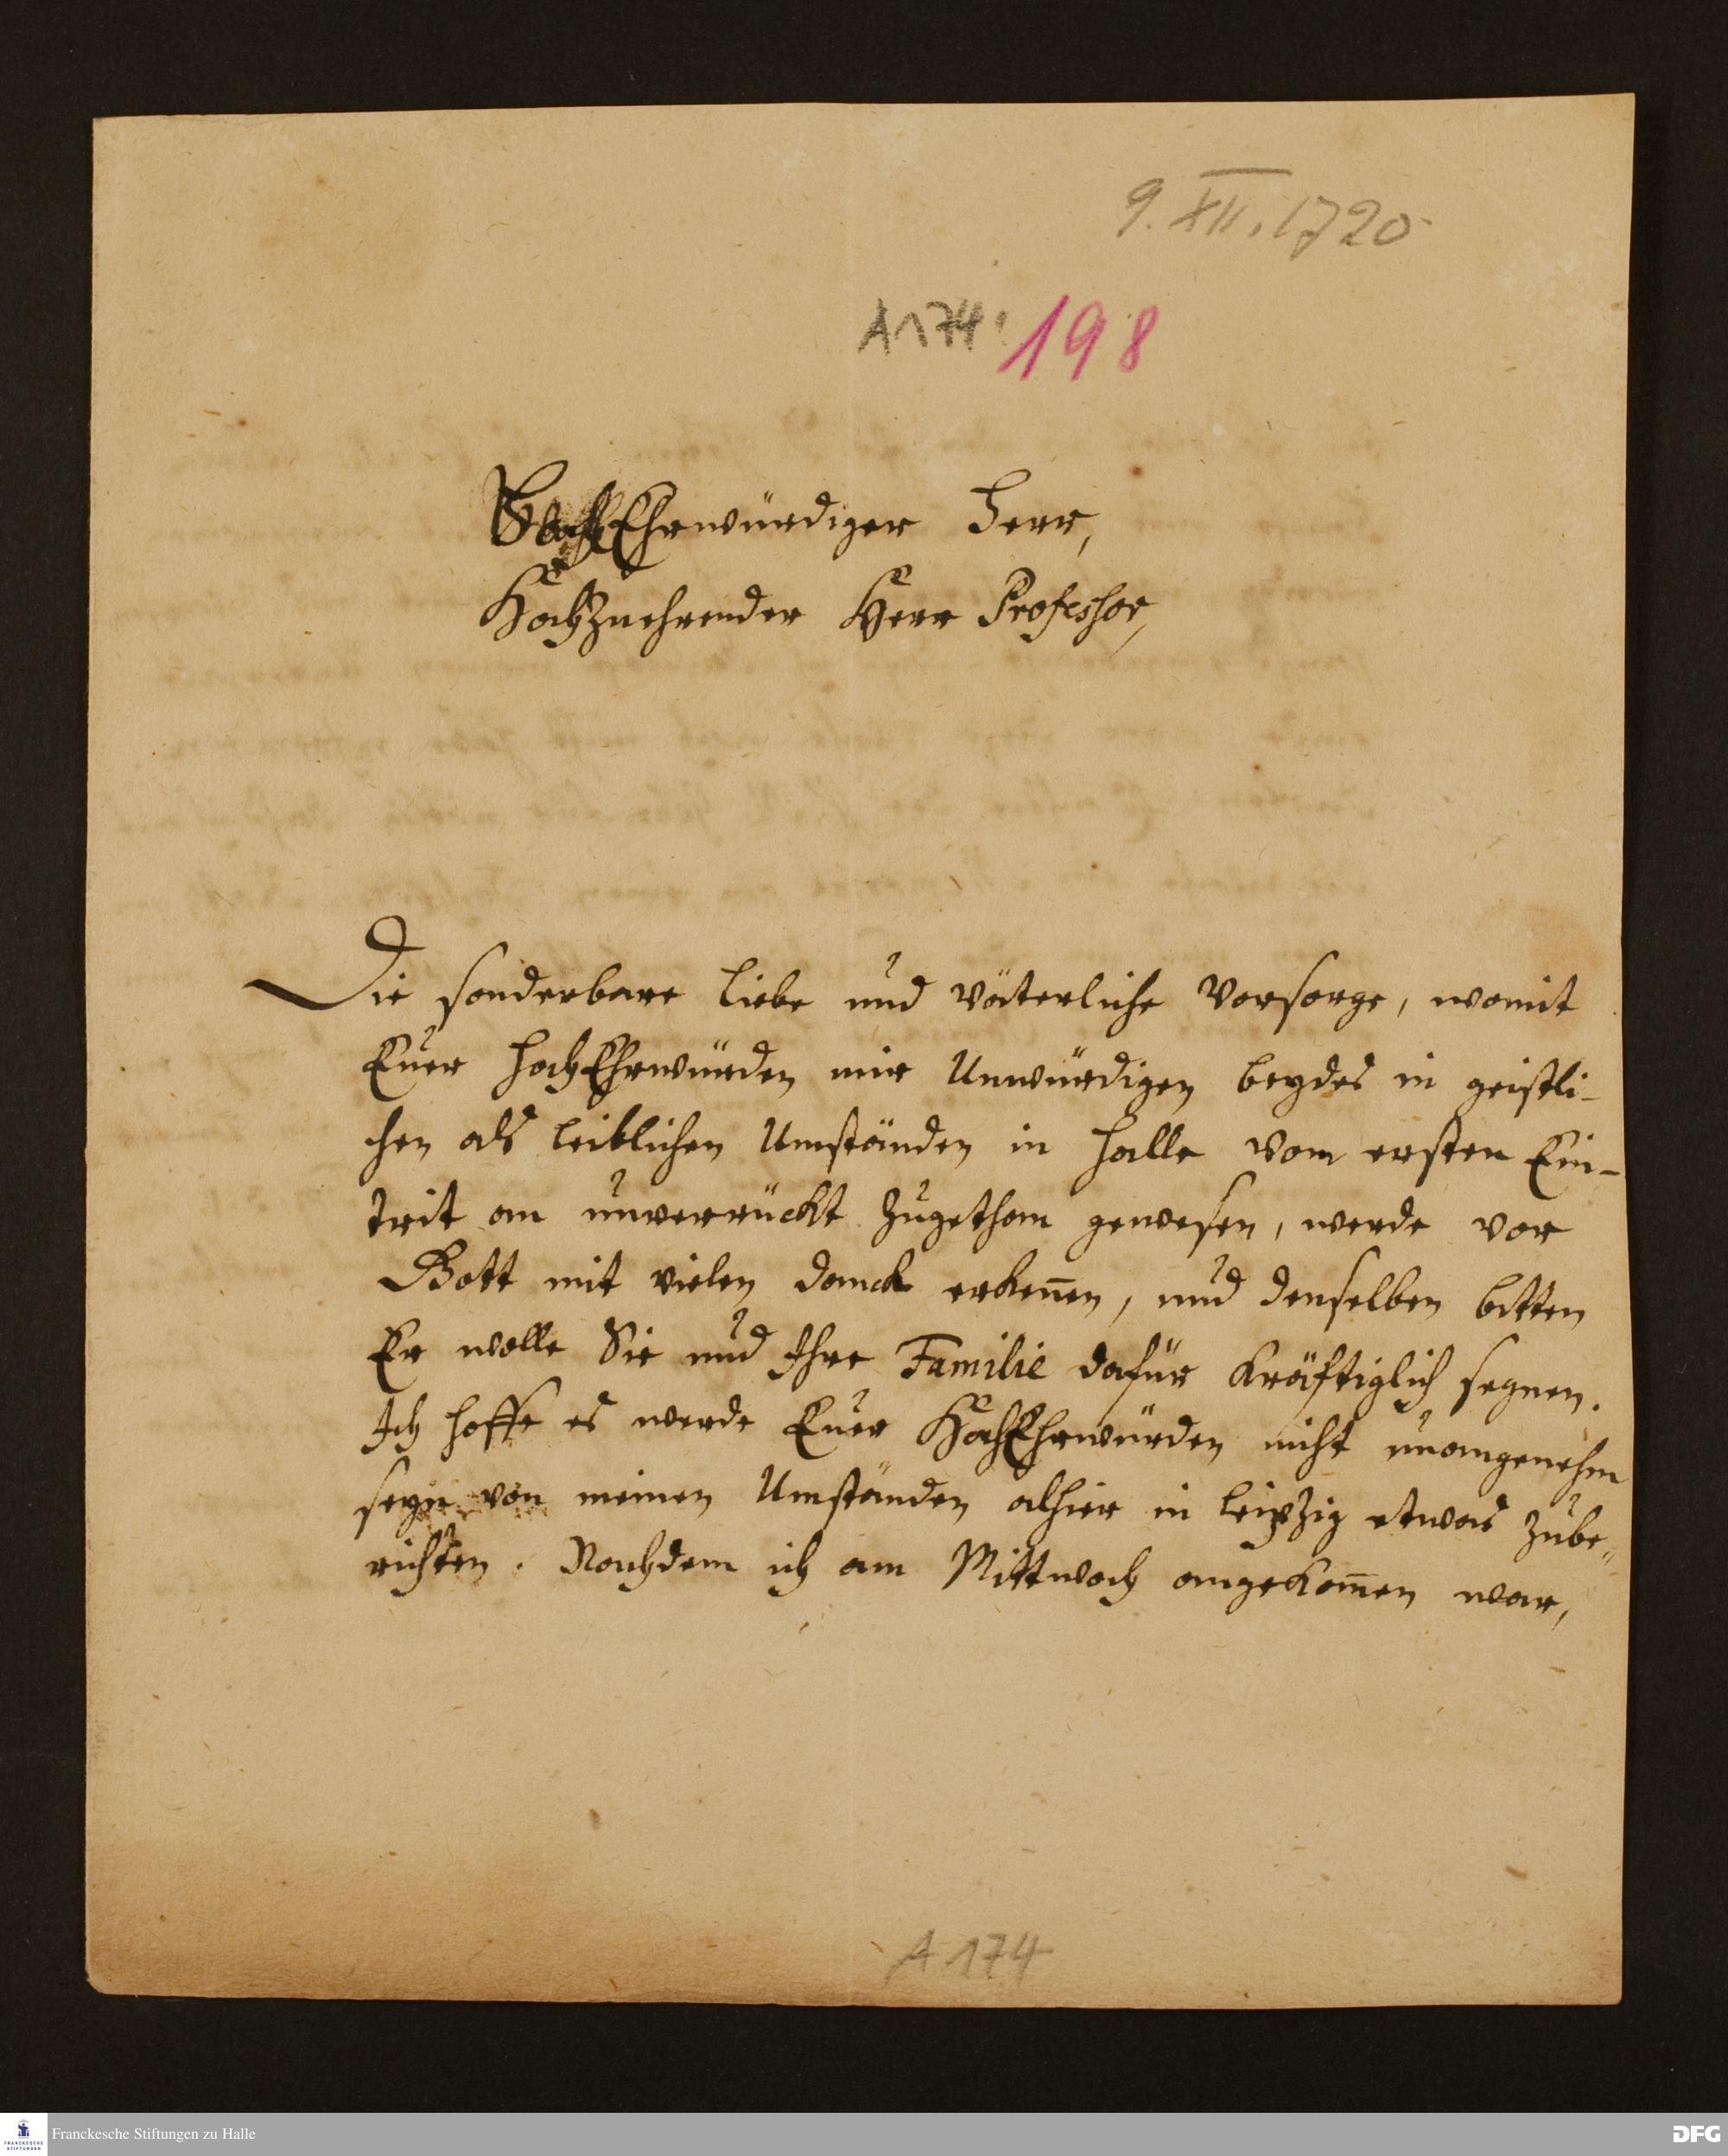 9. XII. 1720
A 174: 198
HochEhrwürdiger Herr,
Hochzuehrender Herr Professor,
Die sonderbare Liebe und väterliche Vorsorge, womit
Euer HochEhrwürden mir Unwürdigen beydes in geistli-
chen als leiblichen Umständen in Halle vom ersten Ein-
trit an unverrückt zugethan gewesen, werde vor
Gott mit vielen danck erkeñen, und denselben bitten
Er wolle Sie und Ihre Familie dafür kräftiglich segnen.
Ich hoffe es werde Euer HochEhrwürden nicht unangenehm
seyn von meinen Umständen alhier in Leipzig etwas zube-
richten. Nachdem ich am Mittwoch angekom̄en war,
A 174
FRANCKESCHE STIFTUNGEN
Franckesche Stiftungen zu Halle
DFG